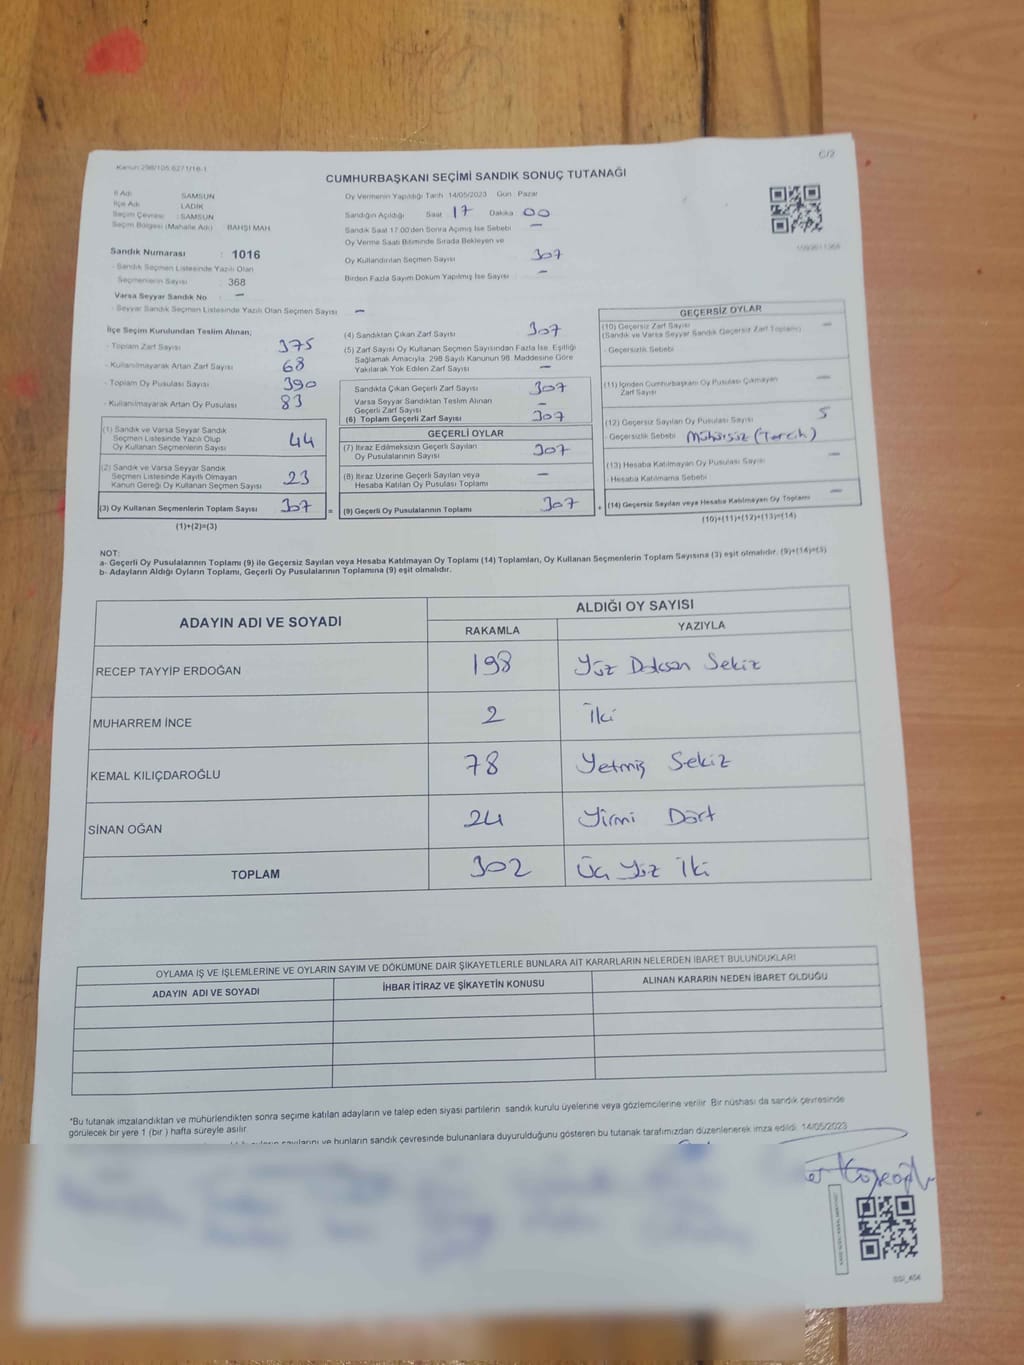 Kanun:298/105,6271/16-1
C/2
CUMHURBAŞKANI SEÇİMİ SANDIK SONUÇ TUTANAĞI
İl Adı SAMSUN
İlçe Adı LADİK
Seçim Çevresi : SAMSUN
Seçim Bölgesi (Mahalle Adı) BAHŞİ MAH.
Sandık Numarası : 1016
- Sandık Seçmen Listesinde Yazılı Olan
Seçmenlerin Sayısı : 368
Varsa Seyyar Sandık No : –
- Seyyar Sandık Seçmen Listesinde Yazılı Olan Seçmen Sayısı –
Oy Vermenin Yapıldığı Tarih 14/05/2023 Gün : Pazar
Sandığın Açıldığı Saat 17 Dakika 00
Sandık Saat 17:00'den Sonra Açılmış İse Sebebi –
Oy Verme Saati Bitiminde Sırada Bekleyen ve
Oy Kullandırılan Seçmen Sayısı 307
Birden Fazla Sayım Döküm Yapılmış İse Sayısı –
İlçe Seçim Kurulundan Teslim Alınan;
- Toplam Zarf Sayısı 375
- Kullanılmayarak Artan Zarf Sayısı 68
- Toplam Oy Pusulası Sayısı 390
- Kullanılmayarak Artan Oy Pusulası 83
(1) Sandık ve Varsa Seyyar Sandık
Seçmen Listesinde Yazılı Olup
Oy Kullanan Seçmenlerin Sayısı 44
(2) Sandık ve Varsa Seyyar Sandık
Seçmen Listesinde Kayıtlı Olmayan
Kanun Gereği Oy Kullanan Seçmen Sayısı 23
(3) Oy Kullanan Seçmenlerin Toplam Sayısı 307 =
(1)+(2)=(3)
(4) Sandıktan Çıkan Zarf Sayısı 307
(5) Zarf Sayısı Oy Kullanan Seçmen Sayısından Fazla İse, Eşitliği
Sağlamak Amacıyla, 298 Sayılı Kanunun 98. Maddesine Göre
Yakılarak Yok Edilen Zarf Sayısı –
Sandıkta Çıkan Geçerli Zarf Sayısı 307
Varsa Seyyar Sandıktan Teslim Alınan
Geçerli Zarf Sayısı –
(6) Toplam Geçerli Zarf Sayısı 307
GEÇERLİ OYLAR
(7) İtiraz Edilmeksizin Geçerli Sayılan
Oy Pusulalarının Sayısı 307
(8) İtiraz Üzerine Geçerli Sayılan veya
Hesaba Katılan Oy Pusulası Toplamı –
(9) Geçerli Oy Pusulalarının Toplamı 307 +
GEÇERSİZ OYLAR
(10) Geçersiz Zarf Sayısı –
(Sandık ve Varsa Seyyar Sandık Geçersiz Zarf Toplamı)
- Geçersizlik Sebebi
(11) İçinden Cumhurbaşkanı Oy Pusulası Çıkmayan
Zarf Sayısı –
(12) Geçersiz Sayılan Oy Pusulası Sayısı 5
- Geçersizlik Sebebi Mühürsüz (Tercih)
(13) Hesaba Katılmayan Oy Pusulası Sayısı –
- Hesaba Katılmama Sebebi
(14) Geçersiz Sayılan veya Hesaba Katılmayan Oy Toplamı –
(10)+(11)+(12)+(13)=(14)
NOT:
a- Geçerli Oy Pusulalarının Toplamı (9) ile Geçersiz Sayılan veya Hesaba Katılmayan Oy Toplamı (14) Toplamları, Oy Kullanan Seçmenlerin Toplam Sayısına (3) eşit olmalıdır. (9)+(14)=(3)
b- Adayların Aldığı Oyların Toplamı, Geçerli Oy Pusulalarının Toplamına (9) eşit olmalıdır.
ADAYIN ADI VE SOYADI
ALDIĞI OY SAYISI
RAKAMLA YAZIYLA
RECEP TAYYİP ERDOĞAN 198 Yüz Doksan Sekiz
MUHARREM İNCE 2 İki
KEMAL KILIÇDAROĞLU 78 Yetmiş Sekiz
SİNAN OĞAN 24 Yirmi Dört
TOPLAM 302 Üç Yüz İki
OYLAMA İŞ VE İŞLEMLERİNE VE OYLARIN SAYIM VE DÖKÜMÜNE DAİR ŞİKAYETLERLE BUNLARA AİT KARARLARIN NELERDEN İBARET BULUNDUKLARI
ADAYIN ADI VE SOYADI İHBAR İTİRAZ VE ŞİKAYETİN KONUSU ALINAN KARARIN NEDEN İBARET OLDUĞU
*Bu tutanak imzalandıktan ve mühürlendikten sonra seçime katılan adayların ve talep eden siyasi partilerin sandık kurulu üyelerine veya gözlemcilerine verilir. Bir nüshası da sandık çevresinde
görülecek bir yere 1 (bir) hafta süreyle asılır.
ve bunların sandık çevresinde bulunanlara duyurulduğunu gösteren bu tutanak tarafımızdan düzenlenerek imza edildi. 14/05/2023